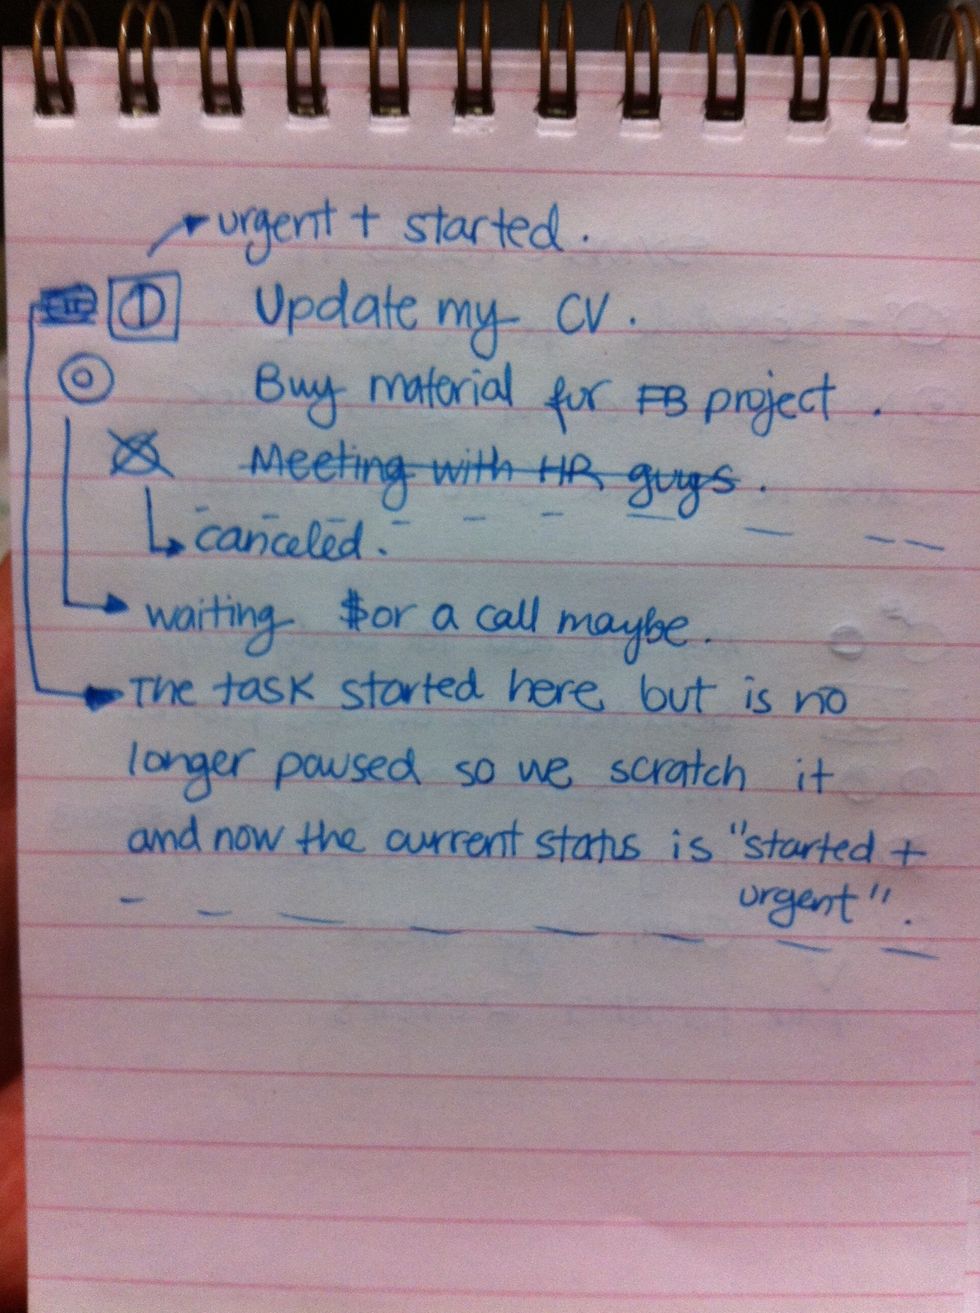 urgent + started.
Update my CV.
Buy material for FB project.
Meeting with HR guys.
canceled.
waiting for a call maybe.
The task started here but is no
longer paused so we scratch it
and now the current status is "started +
urgent".